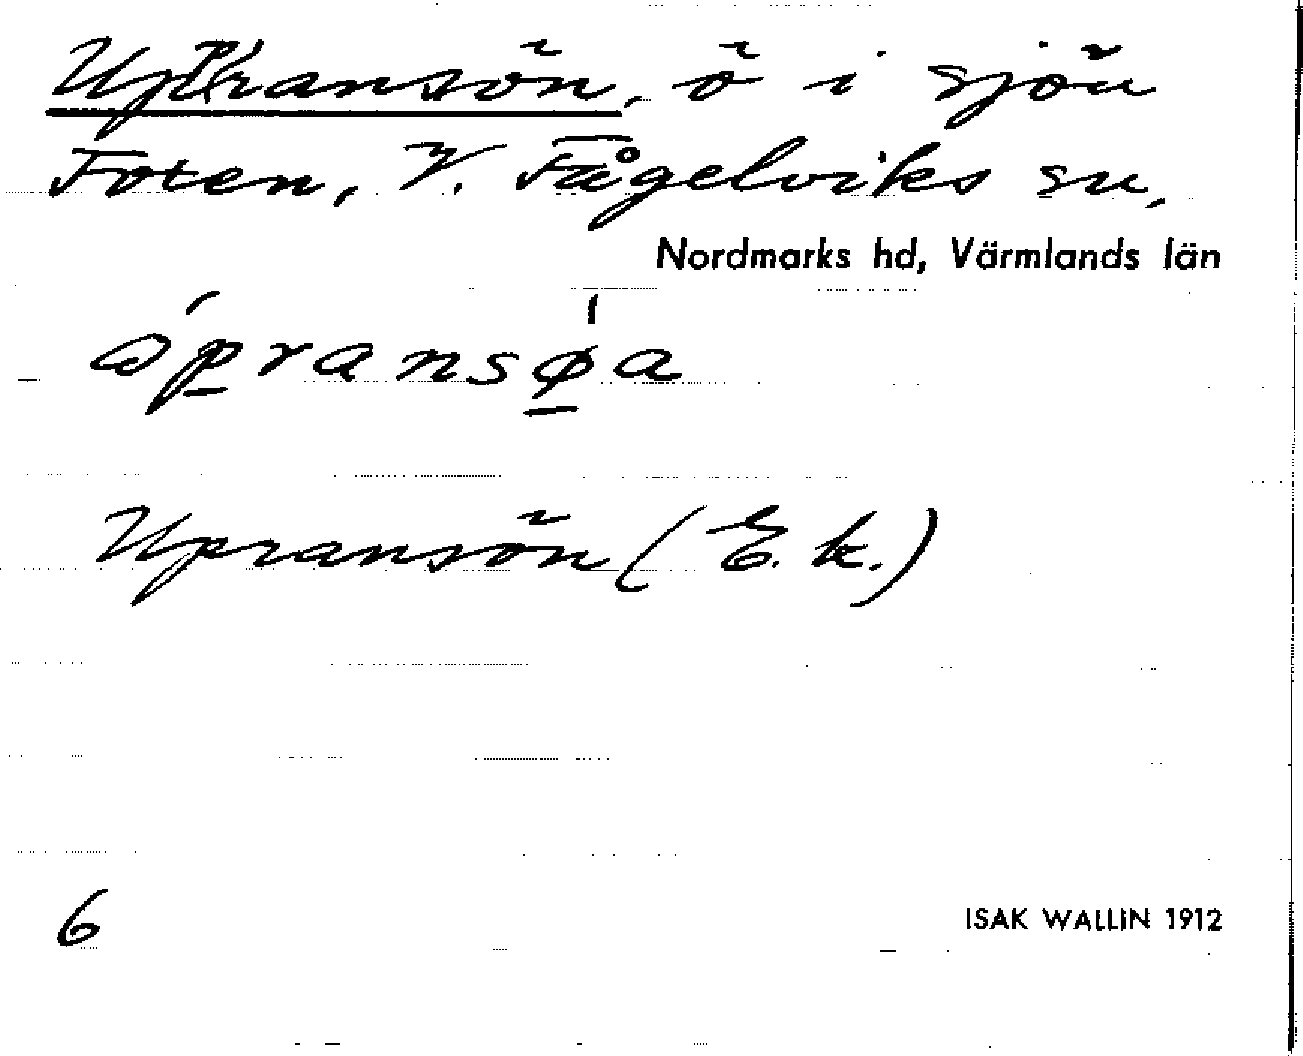 Uppransön, ö i sjön
Foxen, V. Fågelviks sn,
Nordmarks hd, Värmlands län
Upransön (E.k.)
6
ISAK WALLIN 1912